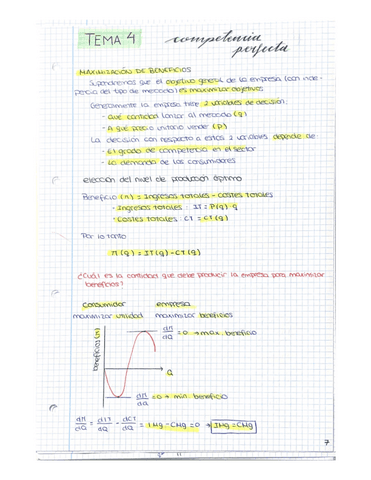 TEMA 4
competencia
perfecta
MAXIMIZACIÓN DE BENEFICIOS
Supondremos que el objetivo general de la empresa (con inde-
pencia del tipo de mercado) es maximizar objetivos
Generalmente la empresa tiene 2 variables de decisión:
- Qué cantidad lanzar al mercado (q)
- A qué precio unitario vender (P)
La decisión con respecto a estas 2 variables depende de
- El grado de competencia en el sector
- La demanda de los consumidores
elección del nivel de producción óptimo
Beneficio (π) = Ingresos totales - Costes totales
- Ingresos totales : IT = P(q) q
- Costes totales : CT = CT(q)
Por lo tanto
π(q) = IT(q) - CT(q)
¿Cuál es la cantidad que debe producir la empresa para maximizar
beneficios?
consumidor empresa
maximizar utilidad maximizar beneficios
beneficios (π)
dπ/dQ = 0 → max. beneficio
Q
dπ/dQ = 0 → min. beneficio
dπ/dQ = dIT/dQ - dCT/dQ = IMg - CMg = 0 → IMg = CMg
7